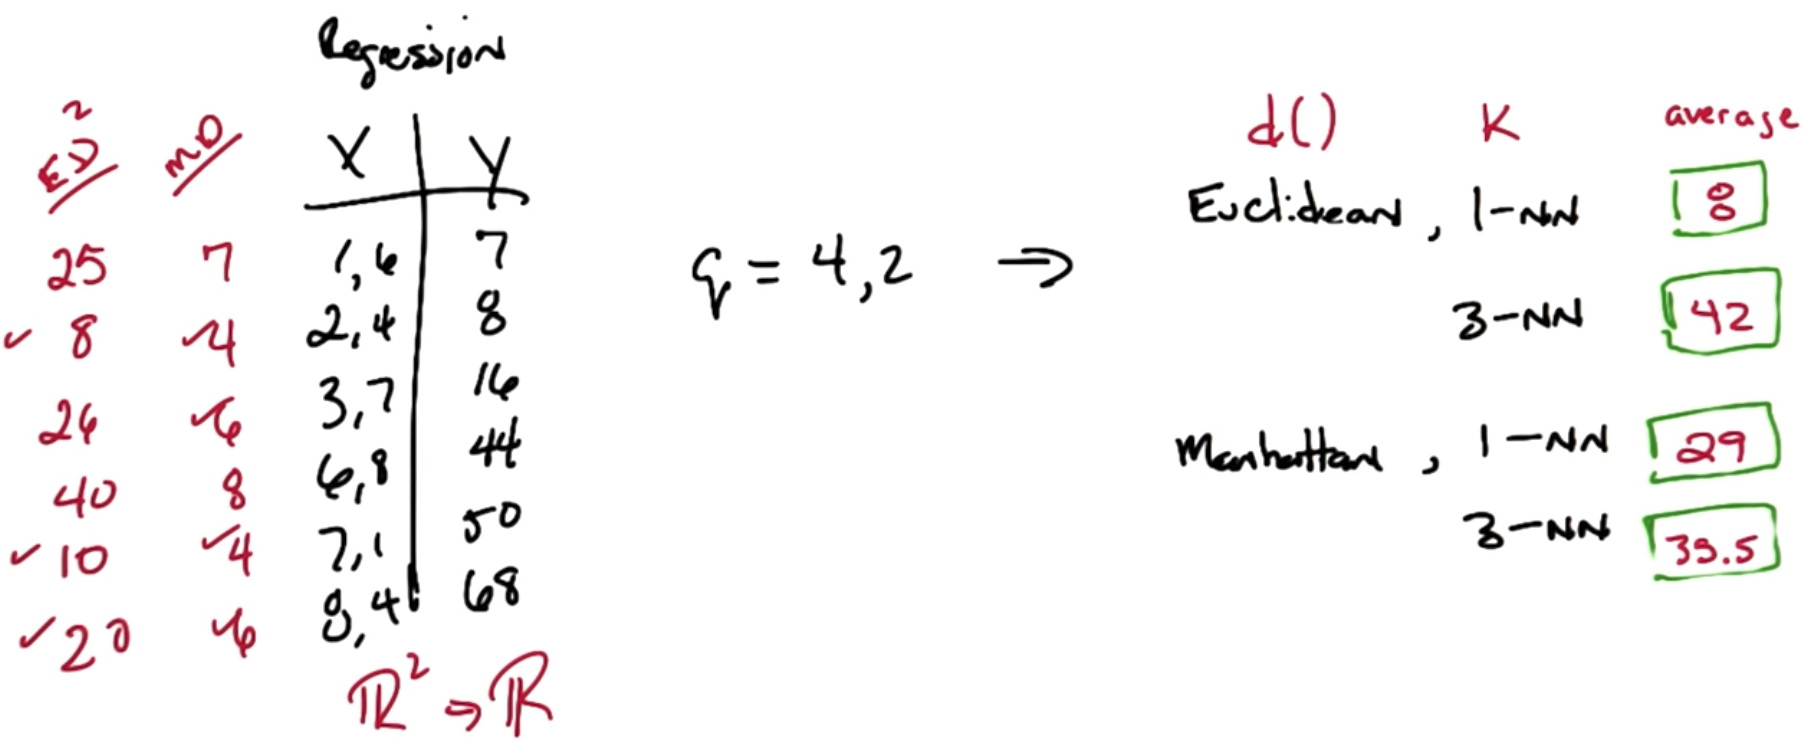 Regression
ED² MD X Y
25 7 1,6 7
✓ 8 ✓4 2,4 8
26 ✓6 3,7 16
40 8 6,8 44
✓ 10 ✓4 7,1 50
✓ 20 ✓6 8,4 68
ℝ² → ℝ
q = 4,2 →
d() K average
Euclidean, 1-NN 8
3-NN 42
Manhattan, 1-NN 29
3-NN 35.5